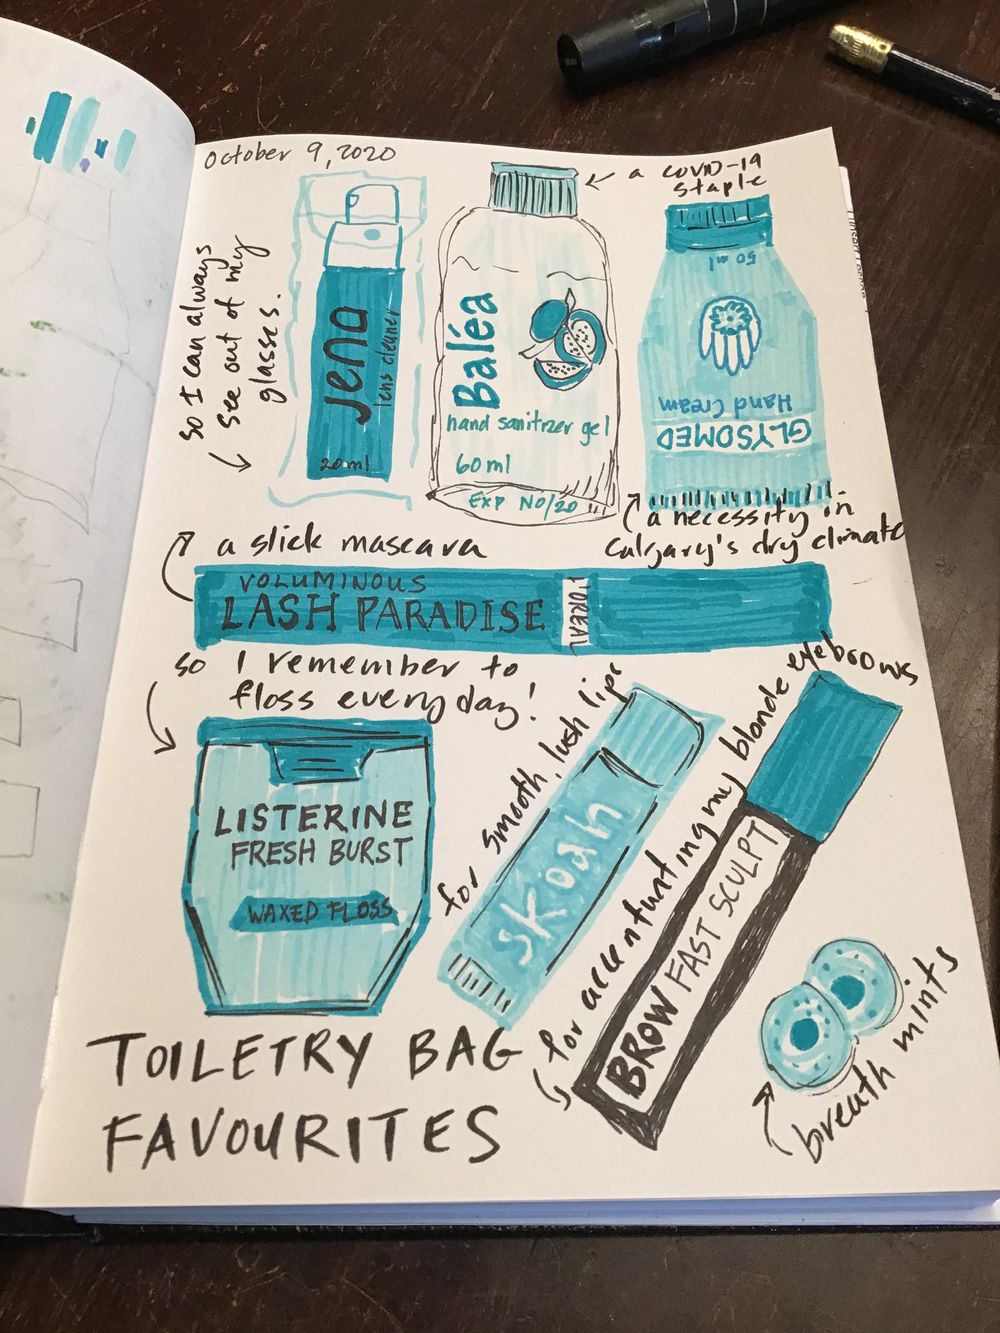 October 9, 2020
a COVID-19
staple
so I can always
see out of my
glasses.
jena
lens cleaner
20ml
Baléa
hand sanitizer gel
60ml
EXP NO/20
50 ml
Hand Cream
GLYSOMED
a necessity in
Calgary's dry climate
a slick mascara
VOLUMINOUS
LASH PARADISE
L'OREAL
so I remember to
floss everyday!
LISTERINE
FRESH BURST
WAXED FLOSS
for smooth, lush lips
skoah
for accuntunting my blonde eyebrows
BROW FAST SCULPT
breath mints
TOILETRY BAG
FAVOURITES